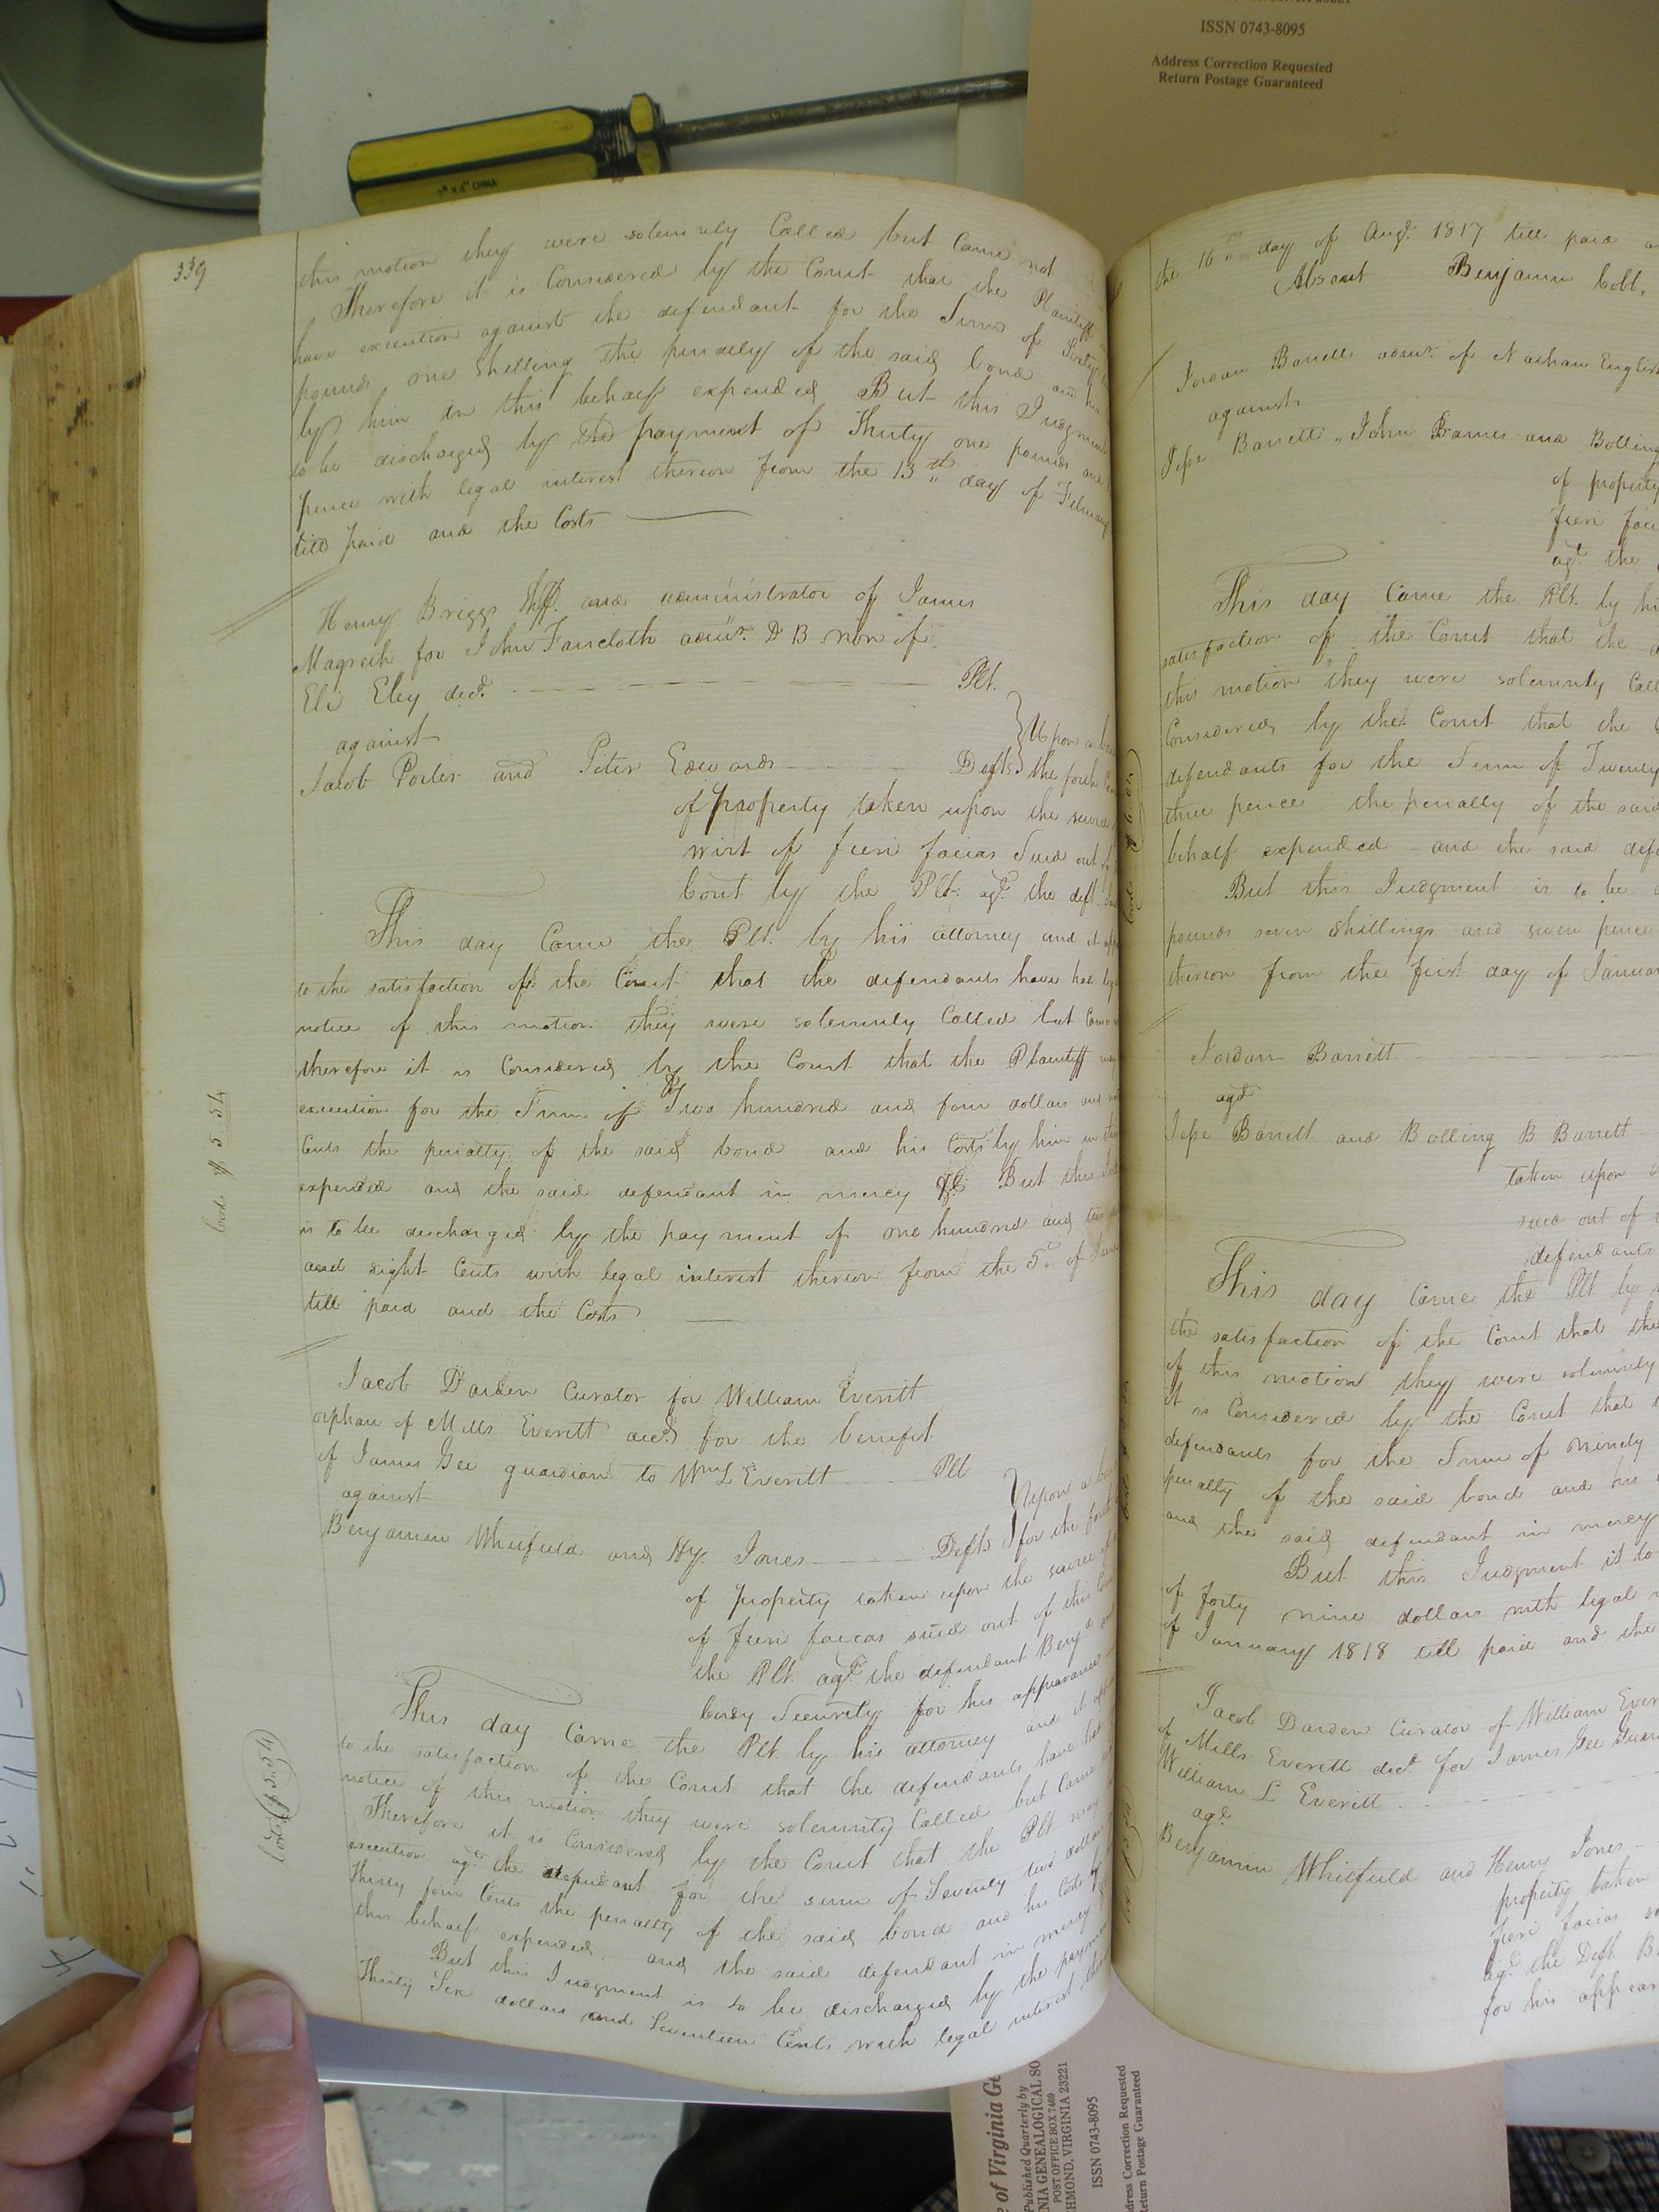 ISSN 0743-8095
Address Correction Requested
Return Postage Guaranteed
CHINA
339
this motion they were solemnly Called but Came not
Therefore it is Considered by the Court that the Plaintiff
have execution against the defendant for the Sum of Sixty
pounds one Shilling the penalty of the said bond and his
by him in this behalf expended But this Judgment
to be discharged by the payment of Thirty one pounds and
pence with legal interest thereon from the 13th day of February
till paid and the Costs
Henry Briggs Shff. and administrator of James
Magreth for John Faircloth admr. D B non of
Eli Eley decd. Plt.
against
Jacob Porter and Peter Edwards Defts
Upon a
the forth
of property taken upon the
wirt of fieri facias Sued out of
Court by the Plt. agt. the deft.
This day Came the Plt. by his attorney and it
to the satisfaction of the Court that the defendants have had
notice of this motion they were solemnly Called but Came
therefore it is Considered by the Court that the Plaintiff
execution for the Sum of Two hundred and four dollars and
Cents the penalty of the said bond and his Costs by him in
expended and the said defendant in mercy &c But this
is to be discharged by the payment of one hundred and
and eight Cents with legal interest thereon from the 5th of
till paid and the Costs
Costs $5.54
Jacob Darden Curator for William Everitt
orphan of Mills Everitt decd for the benefit
of James Gee guardian to Wm L Everitt Plt
against
Benjamin Whitfield and Hy. Jones Defts
Upon a
for the
of property taken upon the
of fieri facias sued out of this
the Plt. agt. the defendant Benja
Security for his appearance
This day Came the Plt. by his attorney and it
to the satisfaction of the Court that the defendants have had
notice of this motion they were solemnly Called but Came
Therefore it is Considered by the Court that the Plt may
execution agt. the defendant for the sum of Seventy two dollars
Thirty four Cents the penalty of the said bond and his Costs by
this behalf expended and the said defendant in mercy
But this Judgment is to be discharged by the payment
Thirty Six dollars and Seventeen Cents with legal interest
Costs $5.54
the 16th day of Augt. 1817 till paid
Absent Benjamin Cobb,
Jordan Barrett admr. of Nathan English
against
Jesse Barrett, John Barnes and Bolling
of property
fieri
agt. the
This day Came the Plt. by
satisfaction of the Court that the
this motion they were solemnly
Considered by the Court that the
defendants for the Sum of Twenty
three pence the penalty of the said
behalf expended and the said
But this Judgment is to be
pounds seven Shillings and seven pence
thereon from the first day of
Jordan Barrett
agt
Jesse Barrett and Bolling B Barrett
taken upon
sued out of
defendants
This day Came the Plt by
the satisfaction of the Court that the
of this motion they were solemnly
it is Considered by the Court that
defendants for the Sum of Ninety
penalty of the said bond and his
and the said defendant in mercy
But this Judgment it to
of forty nine dollars with legal
of January 1818 till paid and the
Jacob Darden Curator of William
of Mills Everett decd for James Gee
William L Everitt
agt.
Benjamin Whitfield and Henry Jones
property taken
fieri facias
agt. the Deft.
for his
Published Quarterly by
POST OFFICE BOX 7469
VIRGINIA 23221
ISSN 0743-8095
Address Correction Requested
Return Postage Guaranteed